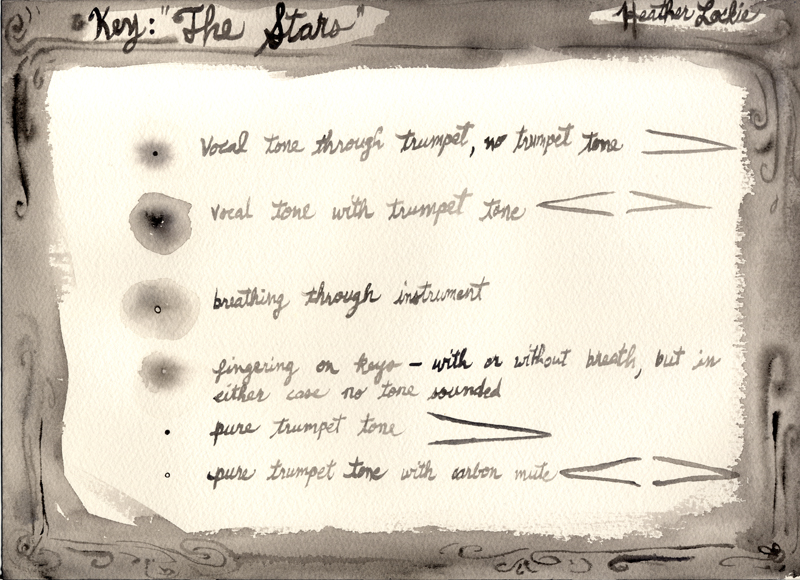 Key: "The Stars"
Heather Lockie
Vocal tone through trumpet, no trumpet tone
vocal tone with trumpet tone
breathing through instrument
fingering on keys – with or without breath, but in
either case no tone sounded
pure trumpet tone
pure trumpet tone with carbon mute